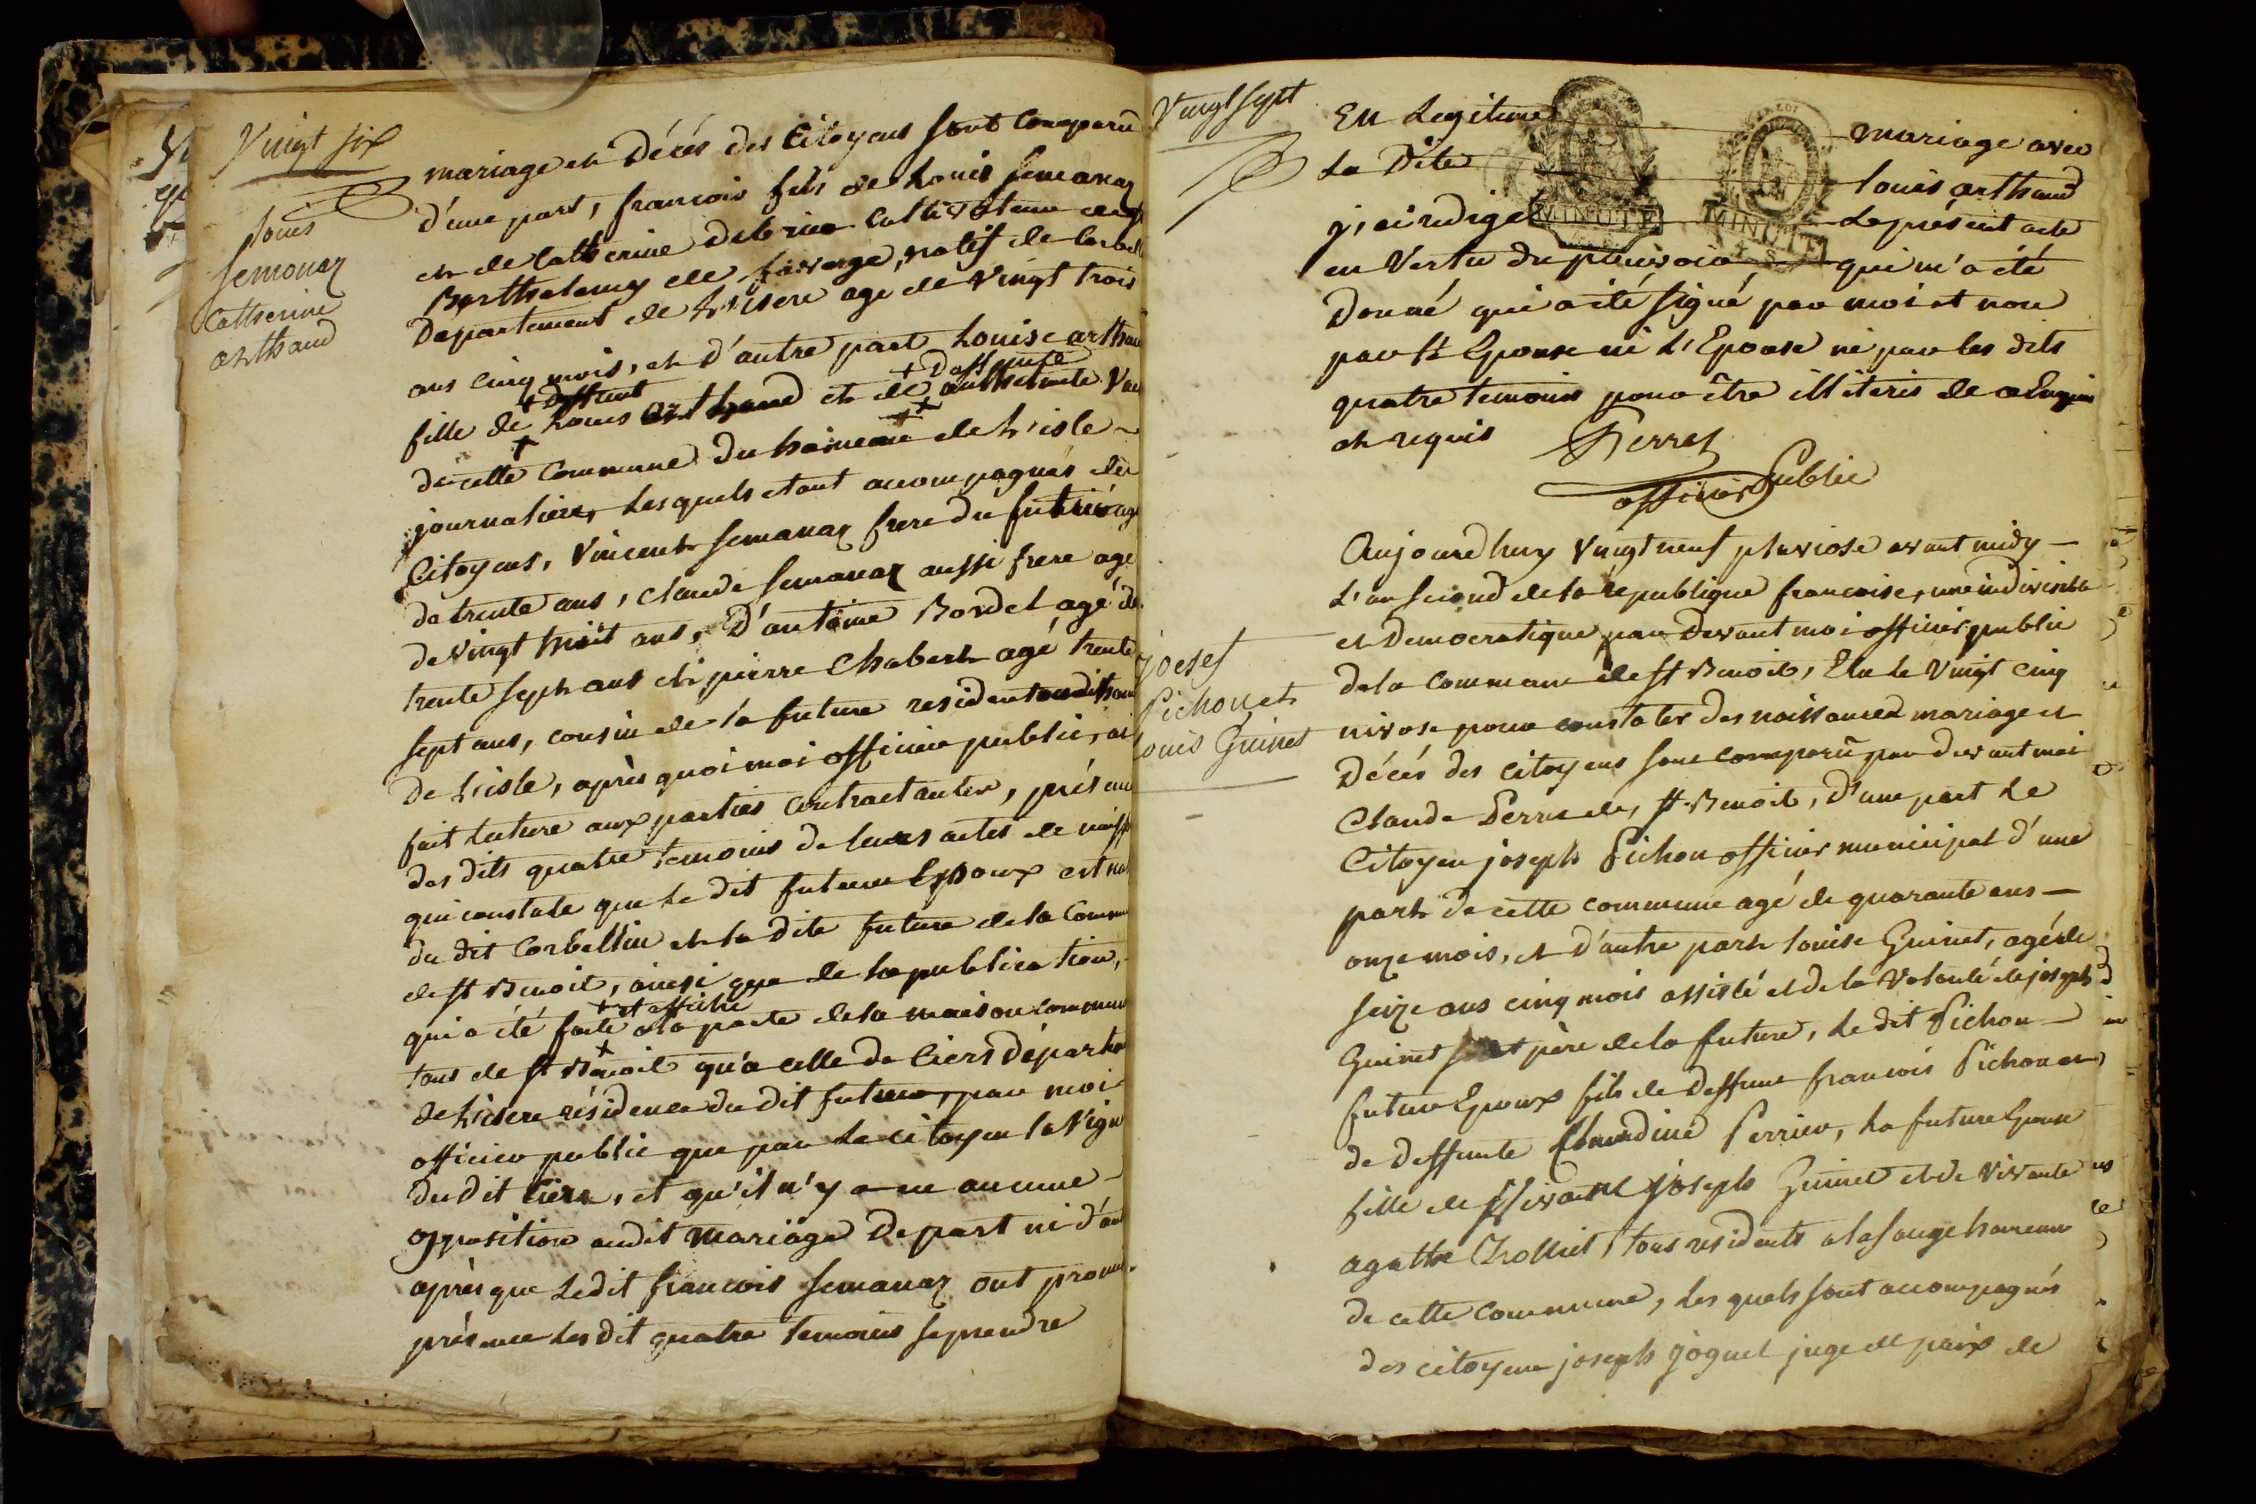 Vingt six
Louis
Semanaz
Catherine
arthaud
mariage et Décés des Citoyens sont comparu
d'une part, francois fils de Louis Semanaz
et de Catherine cultivateur
Barthelemy de faverge, natif de
Departement de L'isere age de vingt trois
ans cinq mois, et d'autre part Louise arthau
+ deffunt + Deffunte
fille de Louis arthaud et de
de cette Commune du hameau de L'isle
journaliere, Les quels etant accompagnés des
Citoyens, Vincent Semanaz frere du futur agé
de trente ans, claude Semanaz aussi frere age
de vingt huit ans, D'antoine Bordet agé de
trente sept ans et pierre Chabert agé trente
sept ans, cousin de la future resident
de L'isle, après quoi moi officier public, ai
fait lecture aux parties contractantes, présence
des dits quatre temoins de leurs actes de naiss
qui constate que le dit futur Epoux est na
du dit Corbellin et la dite future de la Commu
de st Benoit, ainsi que de la publication,
+ et affiché
qui a été faite a la porte de la maison commune
tant de st Benoit qu'a celle de Ciers départ
de L'isere résidence du dit futur, par moi
officier public que par le citoyen la Vign
du dit Ciers, et qu'il n'y a eu aucune
opposition audit mariage De part ni d'au
après que Ledit francois Semanaz ont pronon
présence les dit quatre temoins se prendre
Vingt sept
En Legitime mariage avec
La Dite louis arthaud
j'ai redigé le présent acte
MINUTE
MINUTE
en Vertu du pouvoir qui m'a été
Donné qui a été signé par moi et non
par L'Epoux ni L'Epouse ni par les dits
quatre temoins pour être illiteris de ce enquis
et requis Perret
officier Public
Joesef
Pichon et
Louis Guinet
Aujourdhuy Vingt neuf pluviose avant midy
L'an second de la république francoise, une indivisible
et Democratique, par Devant moi officier public
de la Commune de st Benoit, Elu le Vingt Cinq
nivose pour constater des naissances mariage et
Décés des citoyens sont comparu par devant moi
Claude Perret de, st Benoit, D'une part Le
Citoyen joseph Pichon officier municipal d'une
part de cette commune agé de quarante ans
onze mois, et d'autre part louise Guinet, agée de
seize ans cinq mois assisté et de la volonté de joseph
Guinet père de la future, Le dit Pichon
futur Epoux fils de Deffunt francois Pichon et
de Deffunte Claudine Perrier, La future Epouse
fille de vivant joseph Guinet et de Vivante
agathe Trolliet, tous residents a la sauge hameau
de cette Commune, Les quels sont accompagnés
des citoyens joseph joguet juge de paix de